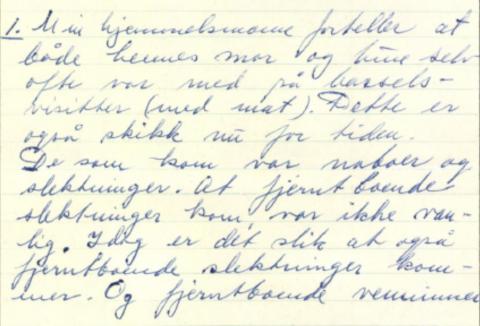 1. Min hjemmelsmann forteller at
både hennes mor og hun selv
ofte var med på barsels-
visitter (med mat). Dette er
også skikk nu for tiden.
De som kom var naboer og
slektninger. At fjerntboende
slektninger kom, var ikke van-
lig. Idag er det slik at også
fjerntboende slektninger kom-
mer. Og fjerntboende venninner